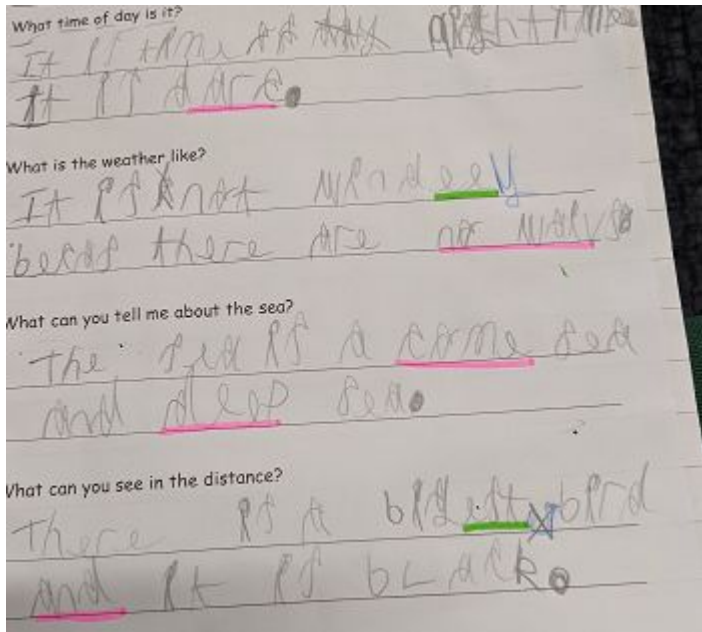 What time of day is it?
It is time at night time
It is darc.
What is the weather like?
It is not windeey
becas there are no walvs
What can you tell me about the sea?
The sea is a came sea
and deep sea.
What can you see in the distance?
There is a big bird
and it is black.